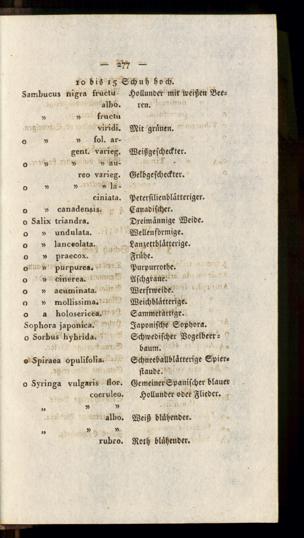 — 277 —
10 bis 15 Schuh hoch.
Sambucus nigra fructu Hollunder mit weißen Bee-
albo. ren.
" " fructu
viridi. Mit grünen.
o " " fol. ar-
gent. varieg. Weißgescheckter.
o " " " au-
reo varieg. Gelbgescheckter.
o " " " la-
ciniata. Petersilienblätteriger.
o " canadensis. Canadischer.
o Salix triandra. Dreimännige Weide.
o " undulata. Wellenförmige.
o " lanceolata. Lanzettblätterige.
o " praecox. Frühe.
o " purpurea. Purpurrothe.
o " cinerea. Aschgraue.
o " acuminata. Werftweide.
o " mollissima. Weichblätterige.
o a holosericea. Sammetartige.
Sophora japonica. Japonische Sophora.
o Sorbus hybrida. Schwedischer Vogelbeer-
baum.
o Spiraea opulifolia. Schneeballblätterige Spier-
staude.
o Syringa vulgaris flor. Gemeiner Spanischer blauer
coeruleo. Hollunder oder Flieder.
" " "
albo. Weiß blühender.
" " "
rubro. Roth blühender.